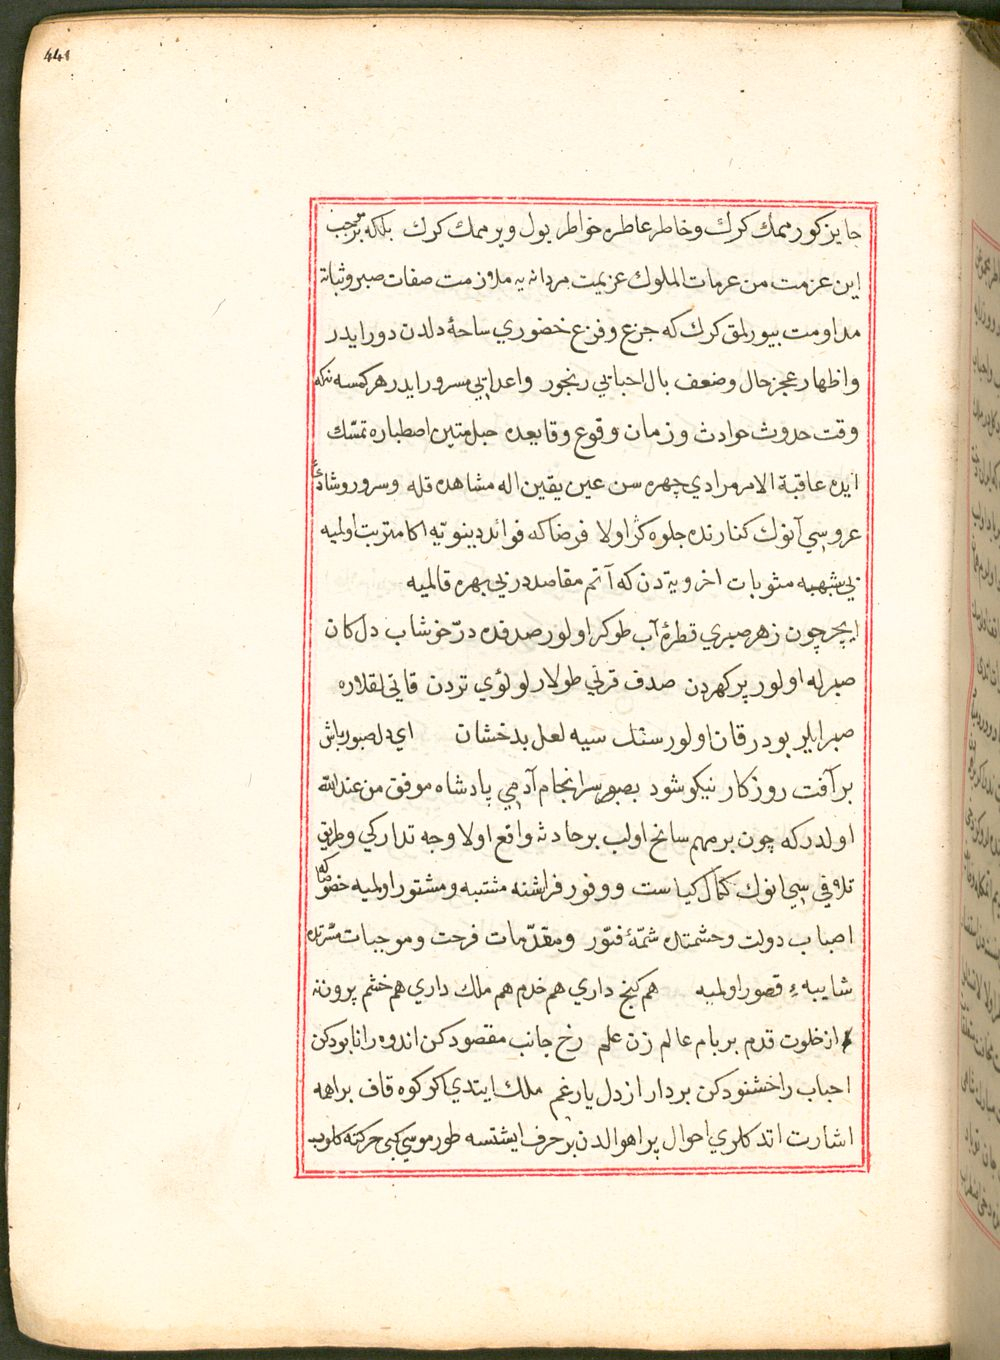 441
جايز كورممك كرك وخاطر عاطره خواطر يول ويرممك كرك بلكه بموجب
اين عزمت من عزمات الملوك عزيمت مردانه يه ملازمت صفات صبر وثباته
مداومت بيورلمق كرك كه جزع وفزع خضوري ساحۀ دلدن دور ايدر
واظهار عجز حال وضعف بال احبايي رنجور واعدايي مسرور ايدر هر كمسه نه كه
وقت حدوث حوادث وزمان وقوع وقايعده حبل متين اصطباره تمسّك
ايده عاقبة الامر مرادي چهره سن عين يقين اله مشاهده قله وسرور وشادئ
عروسي آنوك كنارنده جلوه كر اولا فرضا كه فوائد دينويّه اكا مترتب اولميه
بي شبهه مثوبات اخرويۀ دن كه آتم مقاصددر بي بهره قالميه
ايچر چون زهر صبري قطرۀ آب طوكر اولور صدفده درّ خوشاب دل كان
صبرله اولور پر كهردن صدف قرني طولار لولؤي تردن قاتي لقلاره
صبر ايلر بودر قان اولور سنك سيه لعل بدخشان اي دل صبور باش
بر آفت روزكار نيكو شود بصبور سرانجام آدمي پادشاه موفق من عند الله
اولدر كه چون بر مهم سانح اولب بر حادثه واقع اولا وجه تداركي وطريق
تلافي سي انوك كمال كياست ووفور فراستنه مشتبه ومستور اولميه خصوصا كه
اصباب دولت وحشمتده شمّۀ فتوّر ومقدّمات فرحت وموجبات مسّرتده
شايبه ء قصور اولميه هم كنج داري هم خدم هم ملك داري هم خشم پرون نه
از خلوت قدم بر بام عالم زن علم رخ جانب مقصود كن اندوه را نابود كن
احباب را خشنود كن بردار از دل يار غم ملك ايتدي كر كوه قاف براهمه
اشارت اتدكلري احوال پر اهوالدن بر حرف ايشتسه طور موسي كبي حركته كلوب